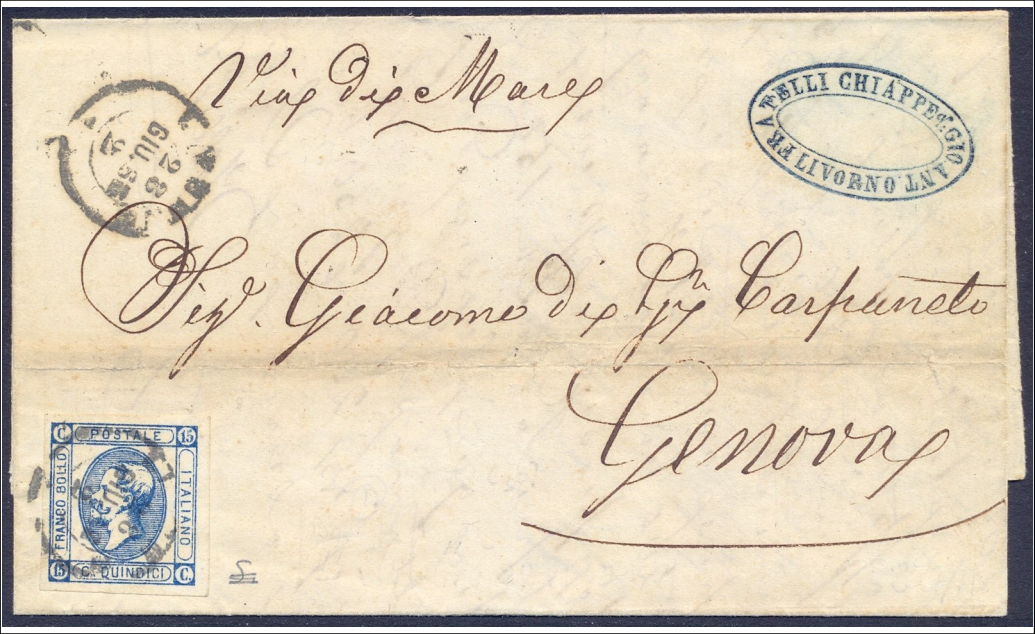 Via di Mare
FRATELLI CHIAPPE qm. GIO ANT. LIVORNO
GIU
Sigr. Giacomo di Gio Carpaneto
Genova
C. POSTALE 15
FRANCO BOLLO
ITALIANO
15 C. QUINDICI C.
GIU